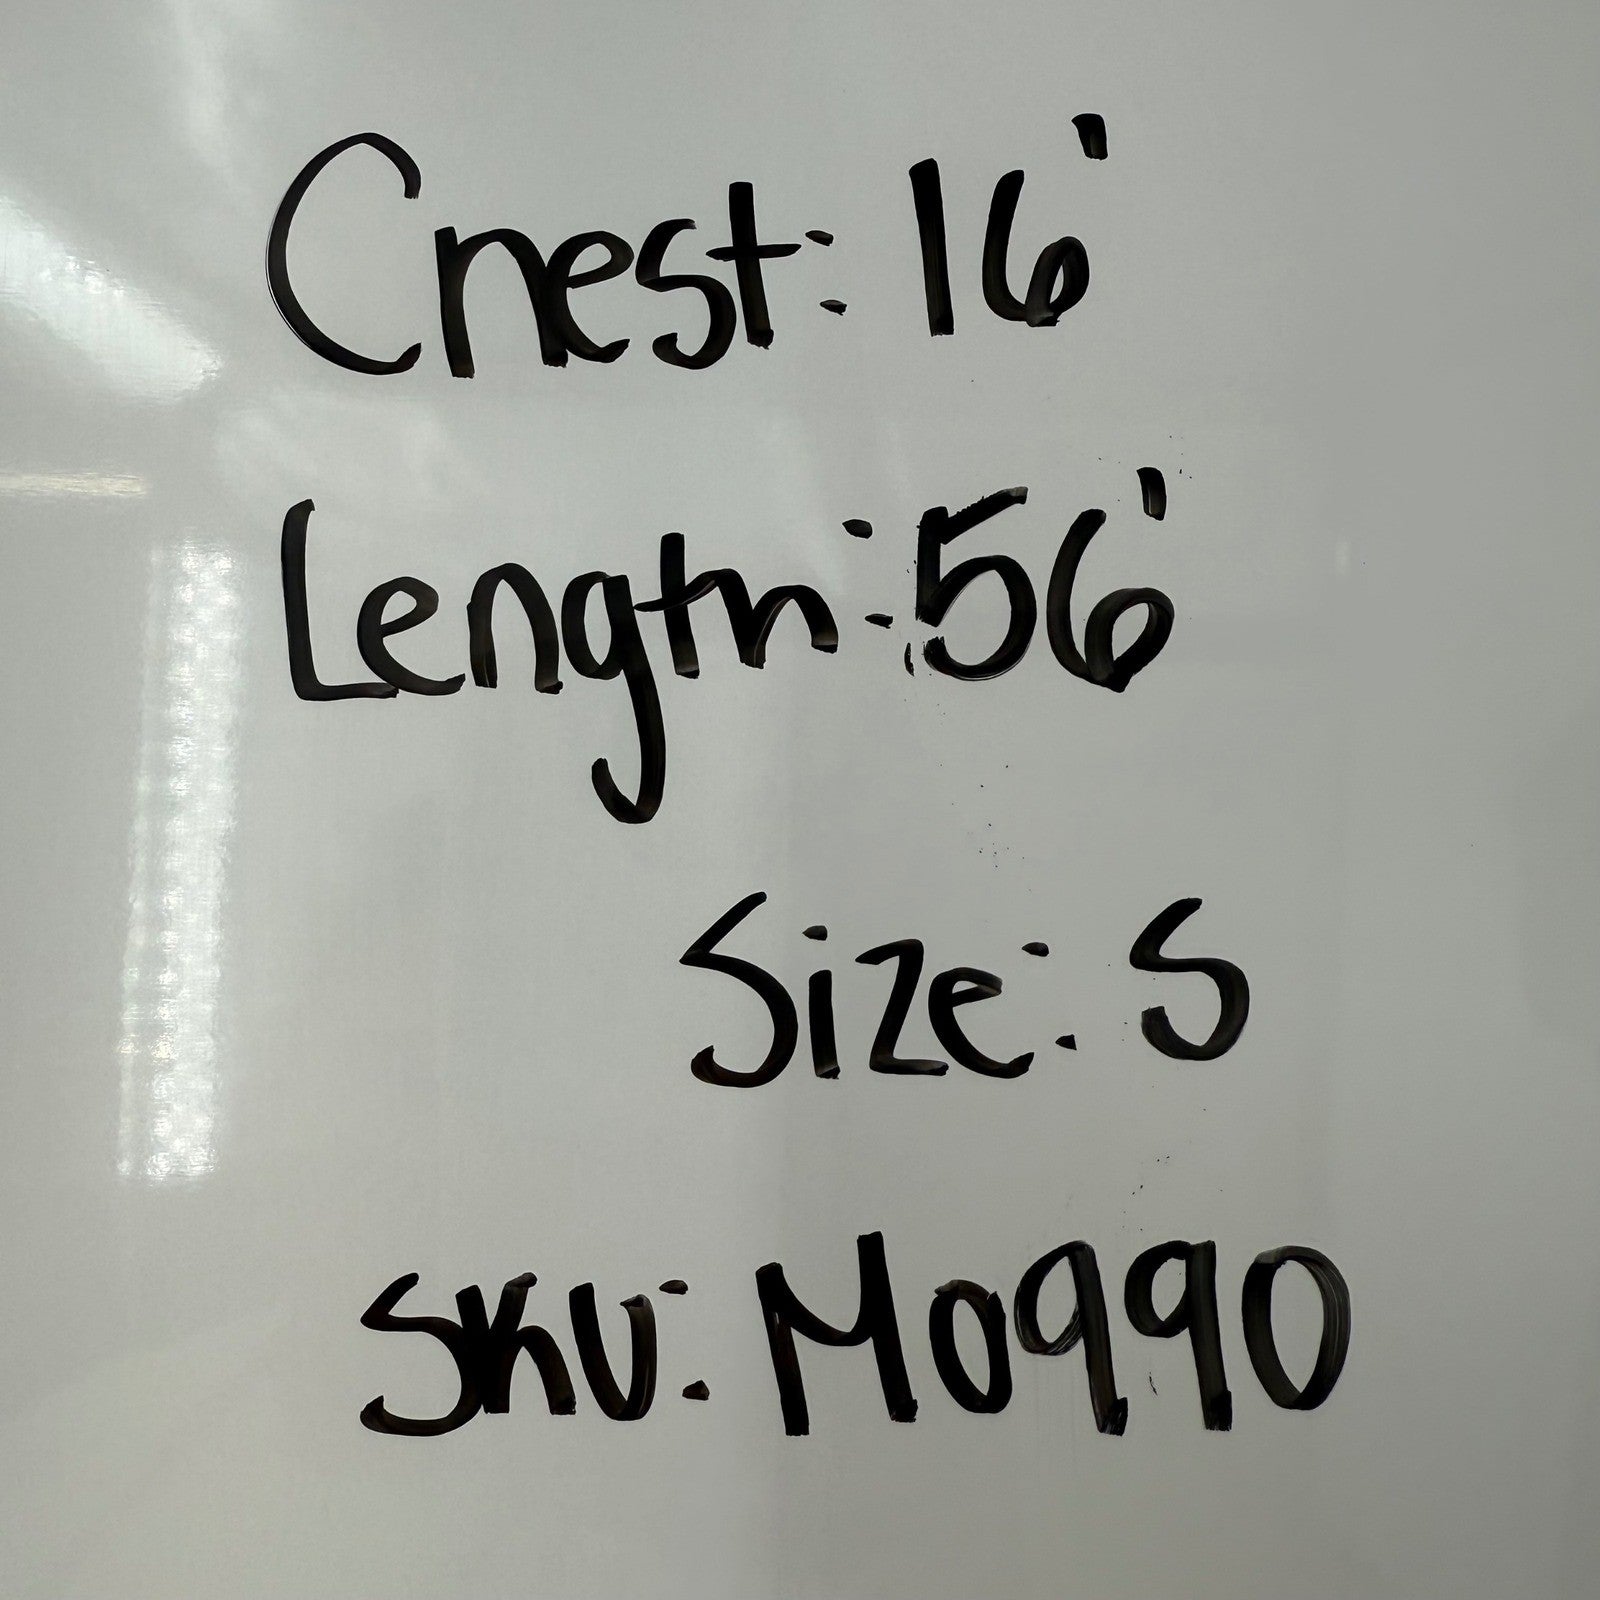 Chest: 16'
Length: 56'
Size: S
SKU: M0990